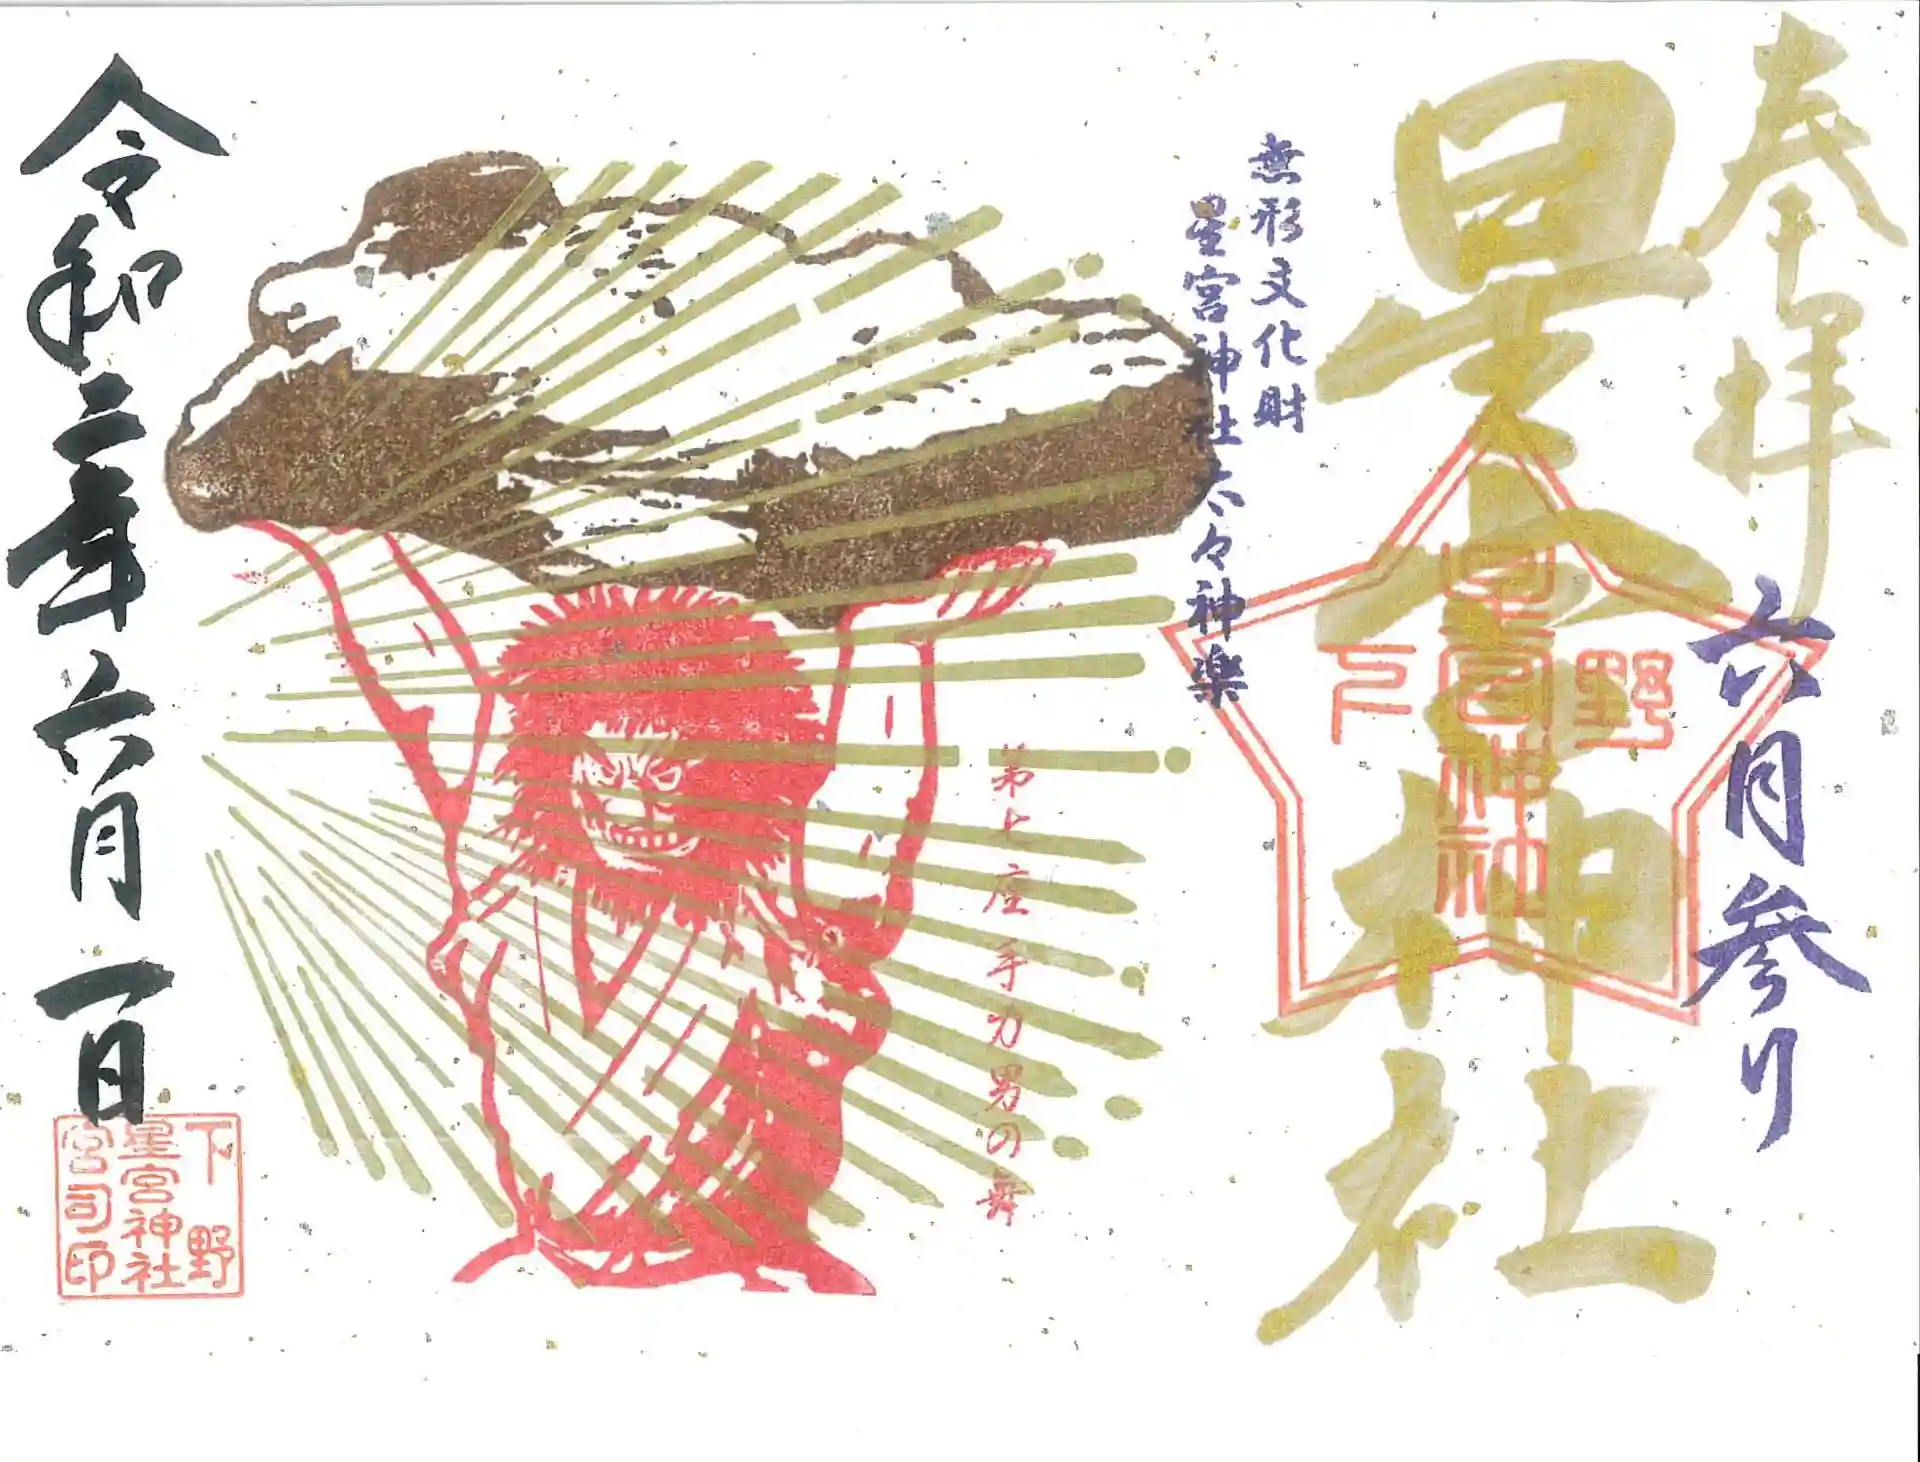 奉拝
六月参り
星宮神社
下野
星宮神社
無形文化財
星宮神社太々神楽
第七座 手力男の舞
令和二年六月一日
下野
星宮神社
宮司印